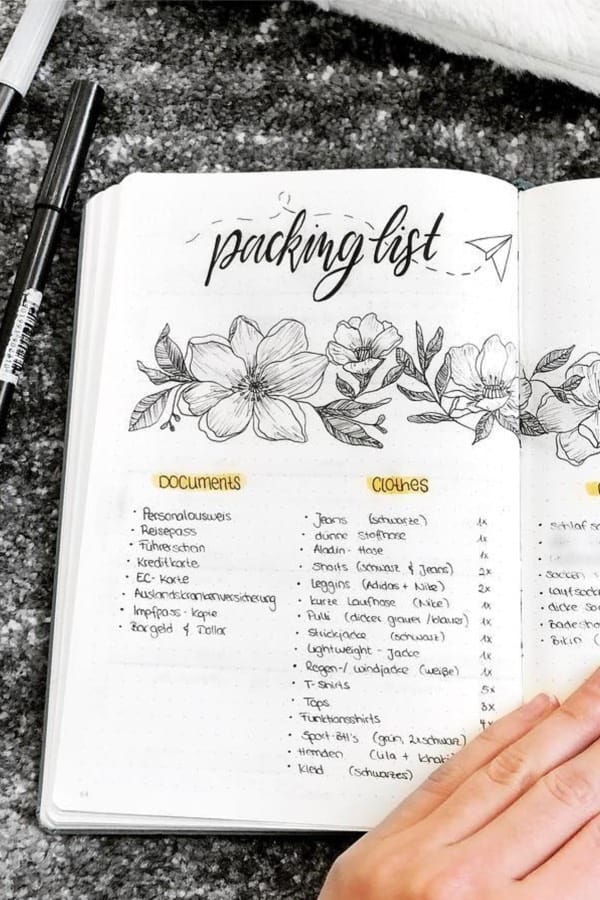 packing list
Documents
• Personalausweis
• Reisepass
• Führerschein
• Kreditkarte
• EC-Karte
• Auslandskrankenversicherung
• Impfpass-Kopie
• Bargeld & Dollar
Clothes
• Jeans (schwarze) 1x
• dünne Stoffhose 1x
• Aladin-Hose 1x
• Shorts (schwarz & Jeans) 2x
• Leggins (Adidas + Nike) 2x
• kurze Laufhose (Nike) 1x
• Pulli (dicker grauer/blauer) 1x
• Strickjacke (schwarz) 1x
• Lightweight-Jacke 1x
• Regen-/Windjacke (weiße) 1x
• T-Shirts 5x
• Tops 3x
• Funktionsshirts 4x
• Sport-BH's (grün, 2xschwarz)
• Hemden (Lila + Khaki
• Kleid (schwarzes)
• Schlaf
• Socken
• Laufsock
• dicke So
• Badesho
• Bikin (
64